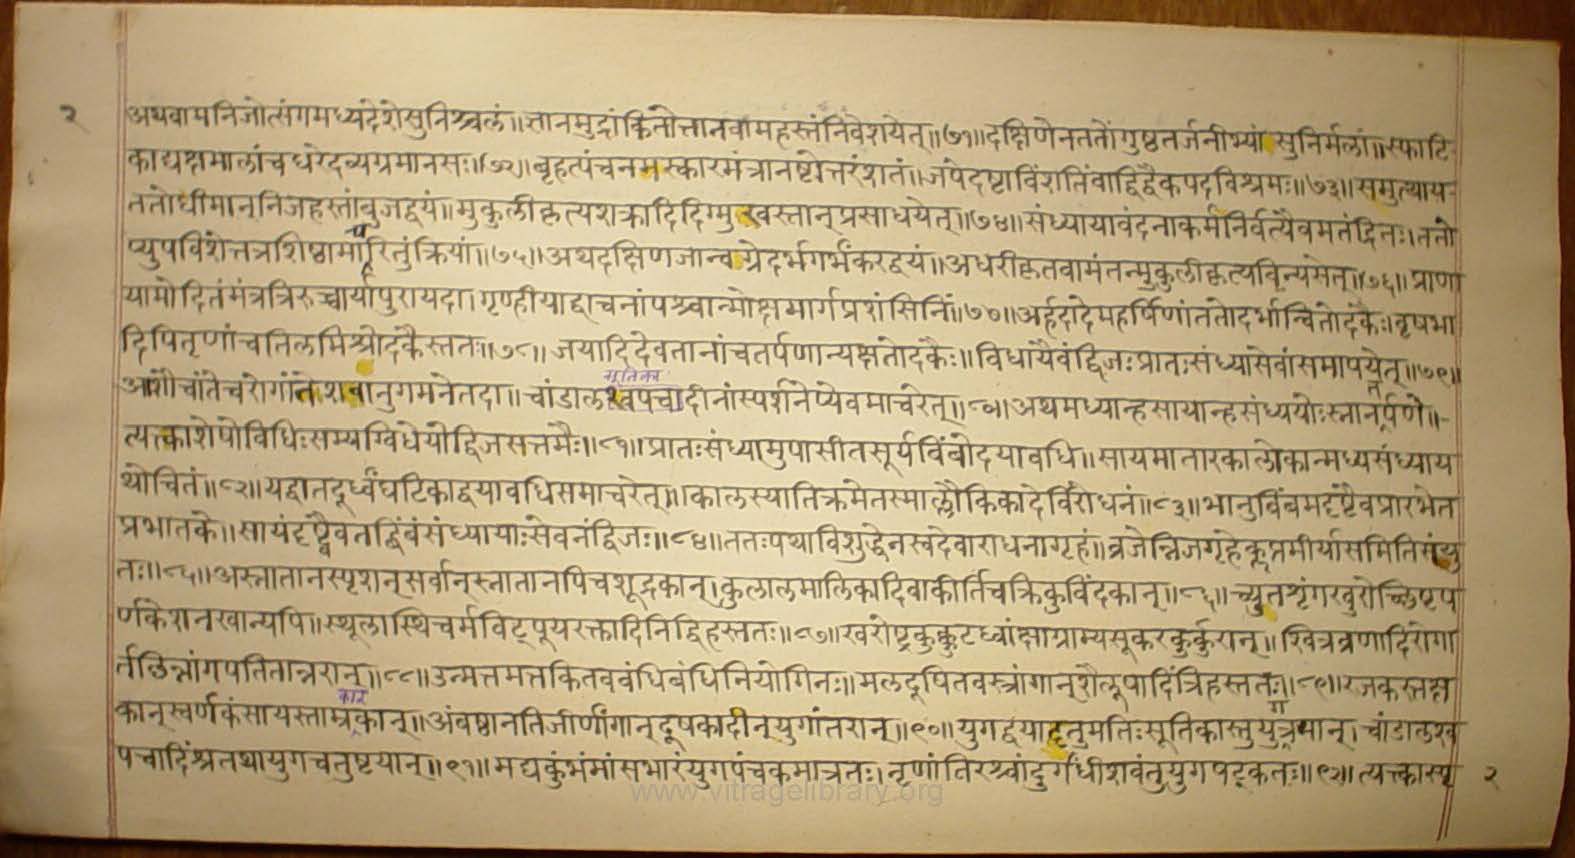 २
अथवामनिजोत्संगमध्यदेशेसुनिश्चलं॥त्तानमुद्रांकितोत्तानवामहस्तंनिवेशयेत्॥७१॥दक्षिणेनततोंगुष्ठतर्जनीभ्यांसुनिर्मलां॥स्फाटि
काद्यक्षमालांचधरेदव्यग्रमानसः॥७२॥बृहत्पंचनमस्कारमंत्रानष्टोत्तरंशतं॥जपेदष्टाविंशतिंवाद्विद्वैकपदविश्रमः॥७३॥समुत्थाय
ततोधीमान्निजहस्तांबुजद्वयं॥मुकुलीकृत्यशक्रादिदिग्मुखस्तान्प्रसाधयेत्॥७४॥संध्यायावंदनाकर्मनिर्वर्त्यैवमतंद्रितः।ततो
प्युपविशेत्तत्रशिष्ठामाचरितुंक्रियां॥७५॥अथदक्षिणजान्वग्रेदर्भगर्भंकरद्वयं॥अधरीकृतवामंतन्मुकुलीकृत्यविन्यसेत्॥७६॥प्राणा
यामोदितंमंत्रत्रिरुच्चार्यापुरायदा।गृण्हीयाद्वाचनांपश्चान्मोक्षमार्गप्रशंसिनिं॥७७॥अर्हदादेमहर्षिणांततोदर्भान्वितोदकैः।वृषभा
दिपितृणांचतिलमिश्रोदकैस्ततः॥७८॥जयादिदेवतानांचतर्पणान्यक्षतोदकैः॥विधायैवंद्विजःप्रातःसंध्यासेवांसमापयेत्॥७९॥
सूतिका
आशौचांतेचरोगांतेशवानुगमनेतदा॥चांडालश्वपचादीनांस्पर्शनेप्येवमाचरेत्॥८०॥अथमध्यान्हसायान्हसंध्ययोःस्नानतर्पणे॥
त्यक्त्काशेषोविधिःसम्यग्विधेयोद्विजसत्तमैः॥८१॥प्रातःसंध्यामुपासीतसूर्यबिंबोदयावधि॥सायमातारकालोकान्मध्यसंध्याय
थोचितं॥८२॥यद्वातदूर्ध्वंघटिकाद्वयावधिसमाचरेत्॥कालस्यातिक्रमेतस्माल्लौकिकादेर्विरोधनं॥८३॥भानुबिंबमदृष्ट्वैवप्रारभेत
प्रभातके॥सायंदृष्ट्वैवतद्बिंबंसंध्यायाःसेवनंद्विजः॥८४॥ततःपथाविशुद्धेनस्वदेवाराधनागृहं॥व्रजेन्निजगृहेकॢप्तमीर्यासमितिसंयु
तः॥८५॥अस्नातानस्पृशन्सर्वान्स्नातानपिचशूद्रकान्।कुलालमालिकादिवाकीर्तिचक्रिकुविंदकान्॥८६॥च्युतशृंगखुरोच्छिष्टप
र्णकेशनखान्यपि॥स्थूलास्थिचर्मविट्पूयरक्तादिनिद्विहस्ततः॥८७॥खरोष्ट्रकुक्कुटध्वांक्षाग्राम्यसूकरकुर्कुरान्॥श्वित्रव्रणादिरोगा
र्तछिन्नांगपतितान्नरान्॥८८॥उन्मत्तमत्तकितवबंधिबंधिनियोगिनः॥मलदूषितवस्त्रांगान्शैलूषादिंत्रिहस्ततः॥८९॥रजकस्तक्ष
कार
कान्स्वर्णकंसायस्ताम्रकान्॥अंबष्ठानतिजीर्णांगान्दूषकादीन्युगांतरान्॥९०॥युगद्वयादृतुमतिःसूतिकास्तुयुगत्रयान्।चांडालश्व
पचादिंश्चतथायुगचतुष्टयान्॥९१॥मद्यकुंभंमांसभारंयुगपंचकमात्रतः।नृणांतिरश्चांदुर्गंधीशवंतुयुगषट्कतः॥९२॥त्यक्त्कास्पृ
२
www.vitragelibrary.org